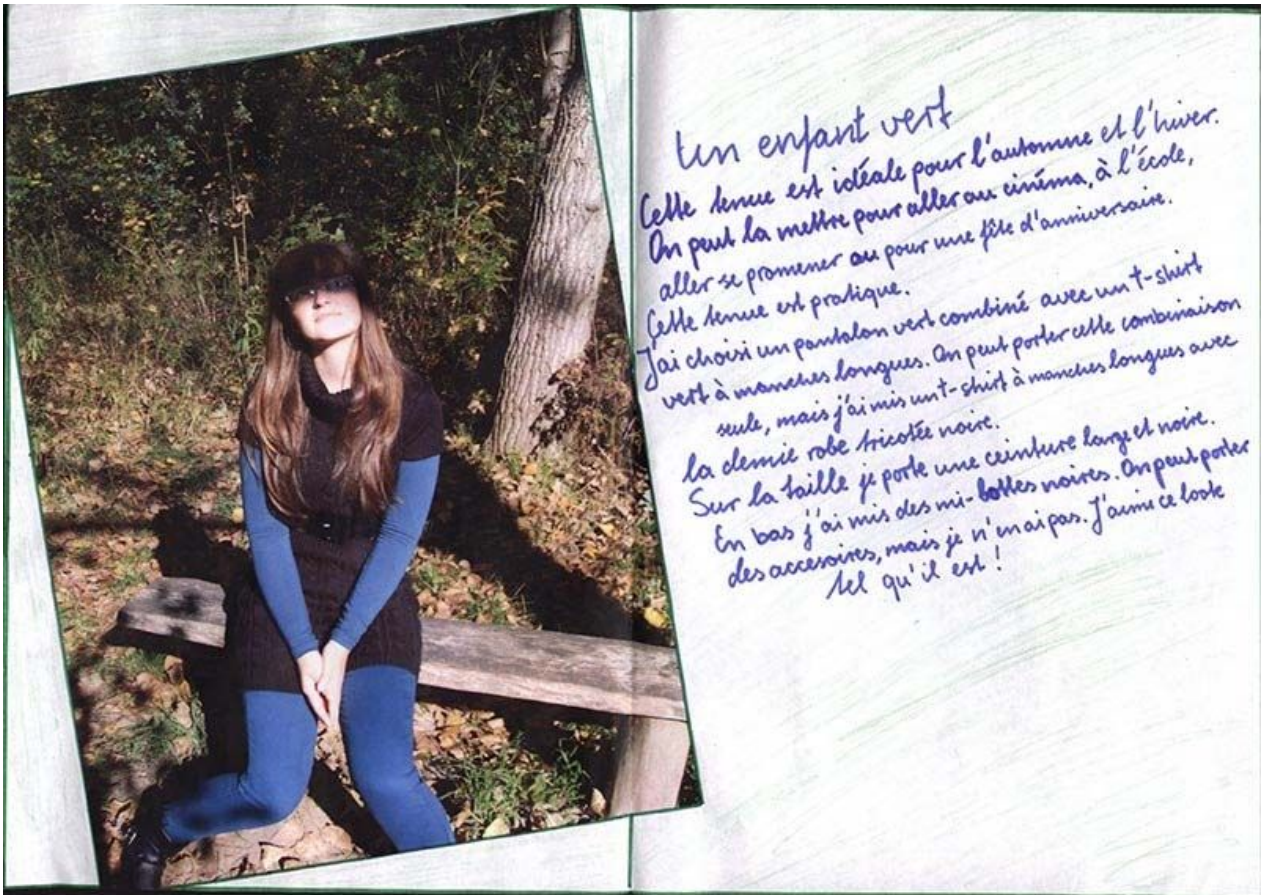 Un enfant vert
Cette tenue est idéale pour l'automne et l'hiver.
On peut la mettre pour aller au cinéma, à l'école,
aller se promener ou pour une fête d'anniversaire.
Cette tenue est pratique.
J'ai choisi un pantalon vert combiné avec un t-shirt
vert à manches longues. On peut porter cette combinaison
seule, mais j'ai mis un t-shirt à manches longues avec
la demie robe tricotée noire.
Sur la taille je porte une ceinture large et noire.
En bas j'ai mis des mi-bottes noires. On peut porter
des accesoires, mais je n'en ai pas. J'aime ce look
tel qu'il est !